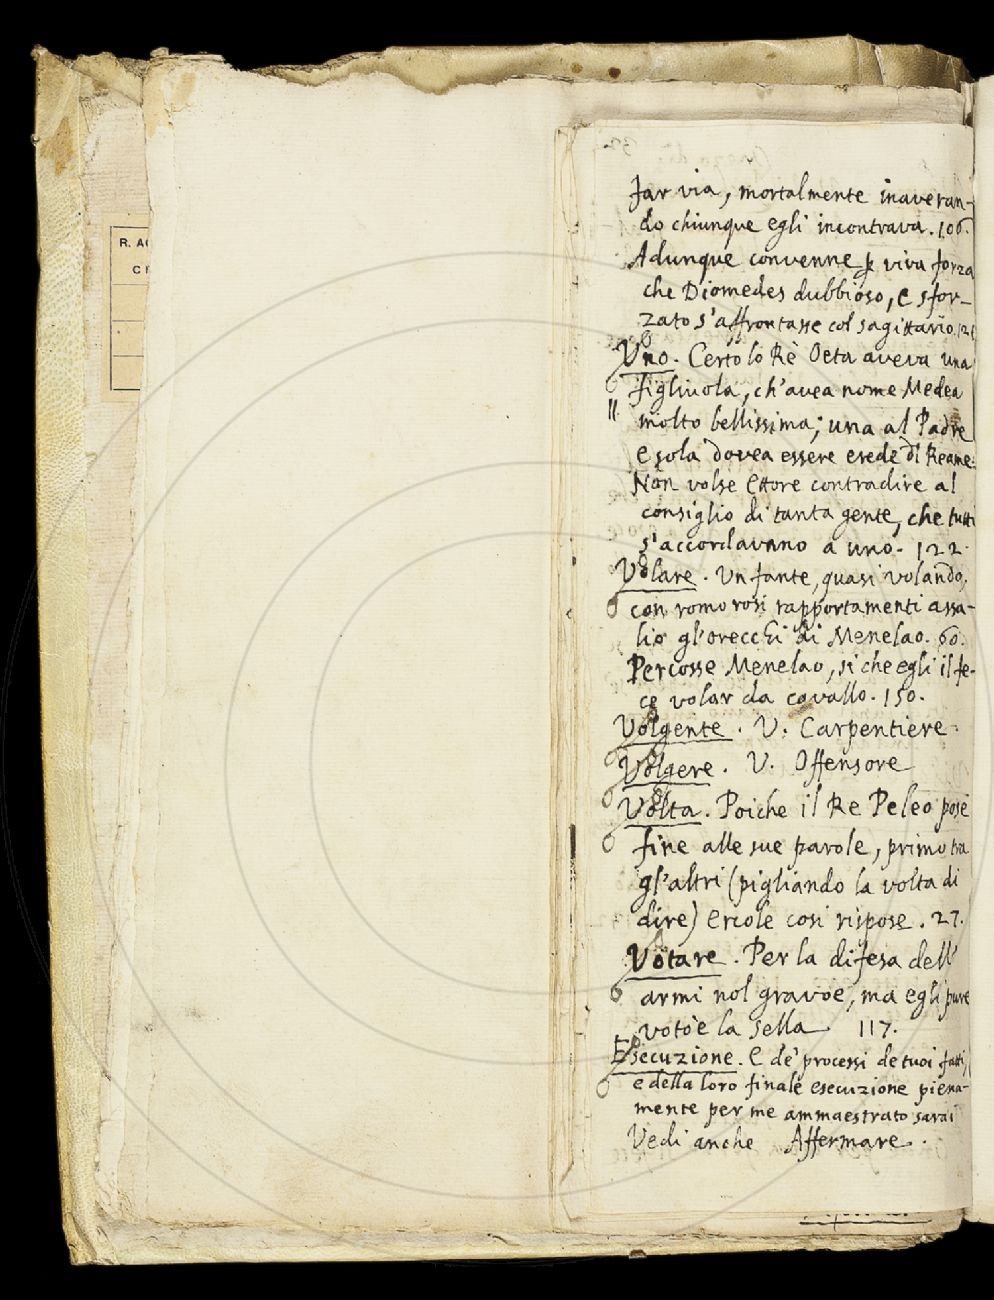 R. AC
C
far via, mortalmente inaveran-
do chiunque egli incontrava. 106.
Adunque convenne ꝑ viva forza
che Diomedes dubbioso, e sfor-
zato s'affrontasse col sagittario.
Uno. Certo lo Rè Oeta aveva una
figliuola, ch'avea nome Medea
molto bellissima; una al Padre
e sola dovea essere erede di Reame.
Non volse Ettore contradire al
consiglio di tanta gente, che tutti
s'accordavano a uno. 122.
Volare. Un fante, quasi volando,
con romorosi rapportamenti assa-
lio gl'orecchi di Menelao. 60.
Percosse Menelao, si che egli il fe-
ce volar da cavallo. 150.
Volgente. V. Carpentiere.
Volgere. V. Offensore
Volta. Poiche il Re Peleo pose
fine alle sue parole, primo tra
gl'altri (pigliando la volta di
dire) Ercole cosi rispose. 27.
Votare. Per la difesa dell'
armi nol gravoe, ma egli pure
votoe la sella 117.
Esecuzione. E de' processi de tuoi fatti,
e della loro finale esecuzione piena-
mente per me ammaestrato sarai
Vedi anche Affermare.